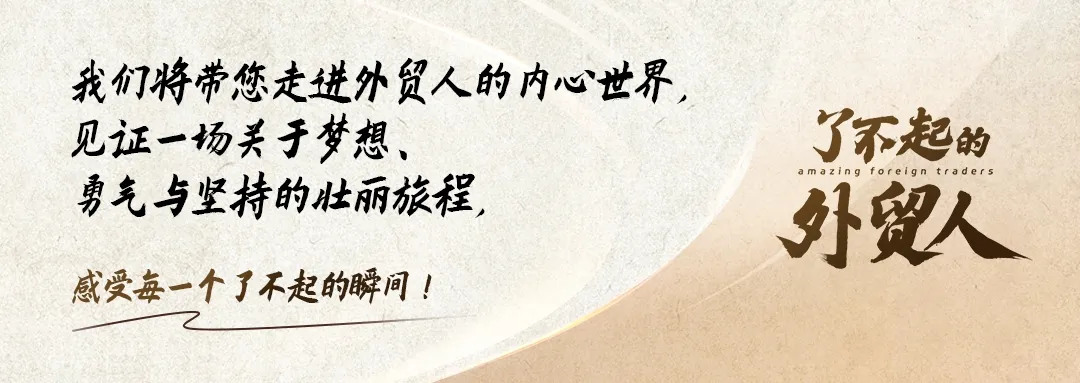 我们将带您走进外贸人的内心世界，
见证一场关于梦想、
勇气与坚持的壮丽旅程，
感受每一个了不起的瞬间！
了不起的
amazing foreign traders
外贸人